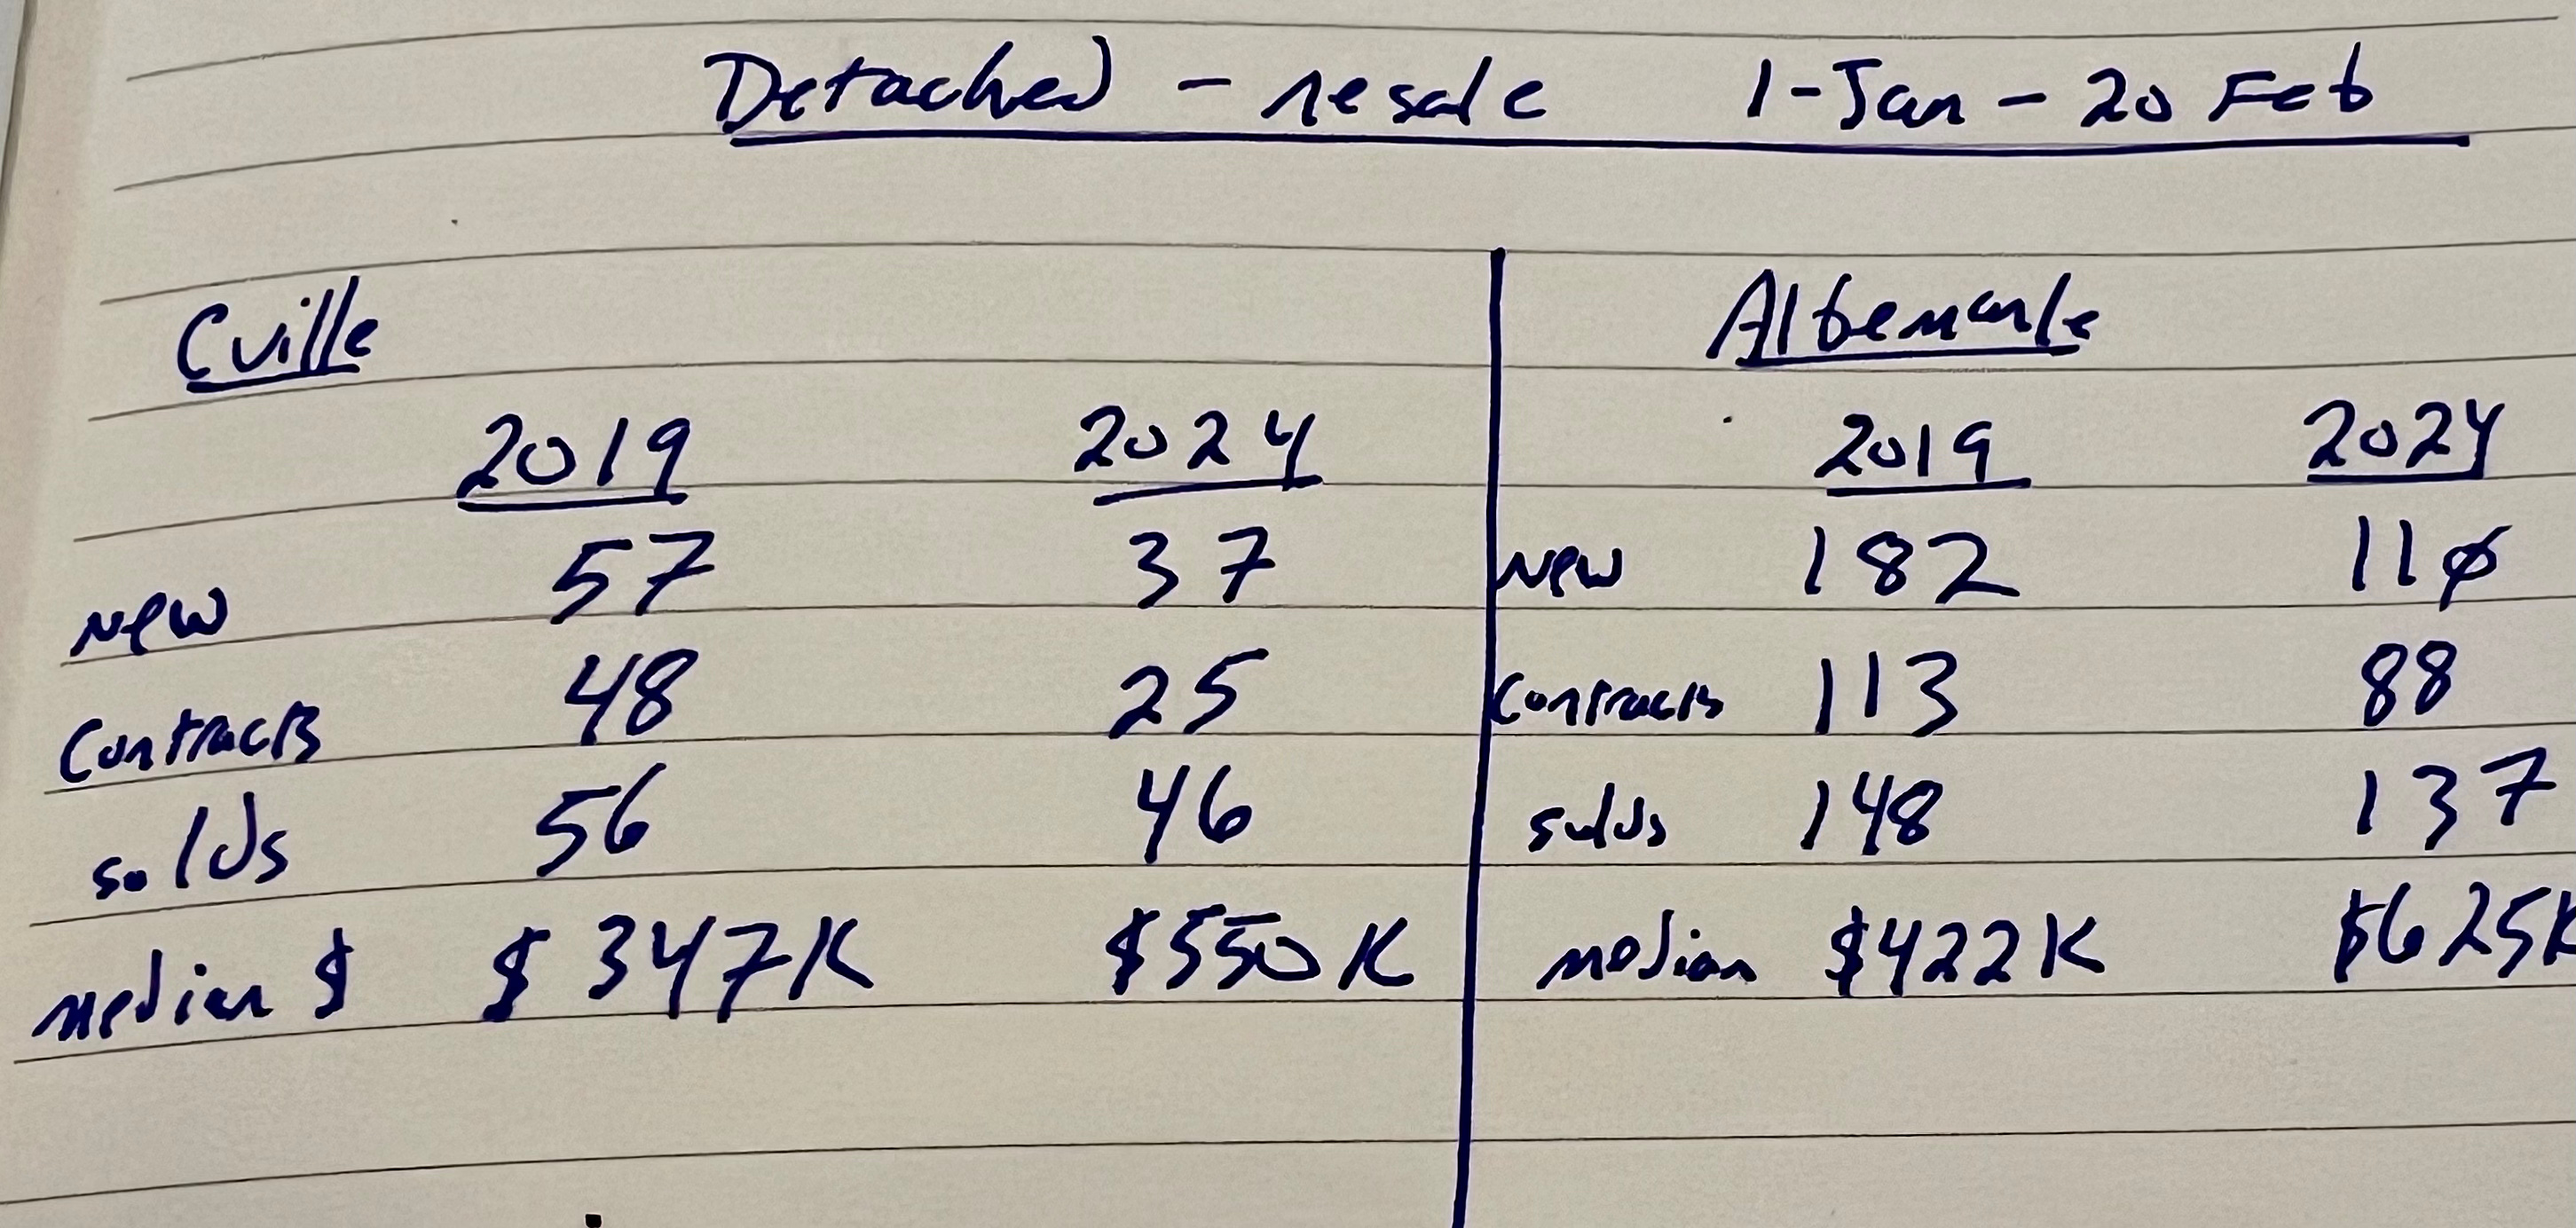 Detached - resale 1-Jan - 20 Feb
Cville Albemarle
2019 2024 2019 2024
new 57 37 new 182 110
Contracts 48 25 Contracts 113 88
solds 56 46 solds 148 137
median $ $347K $550K median $422K $625K